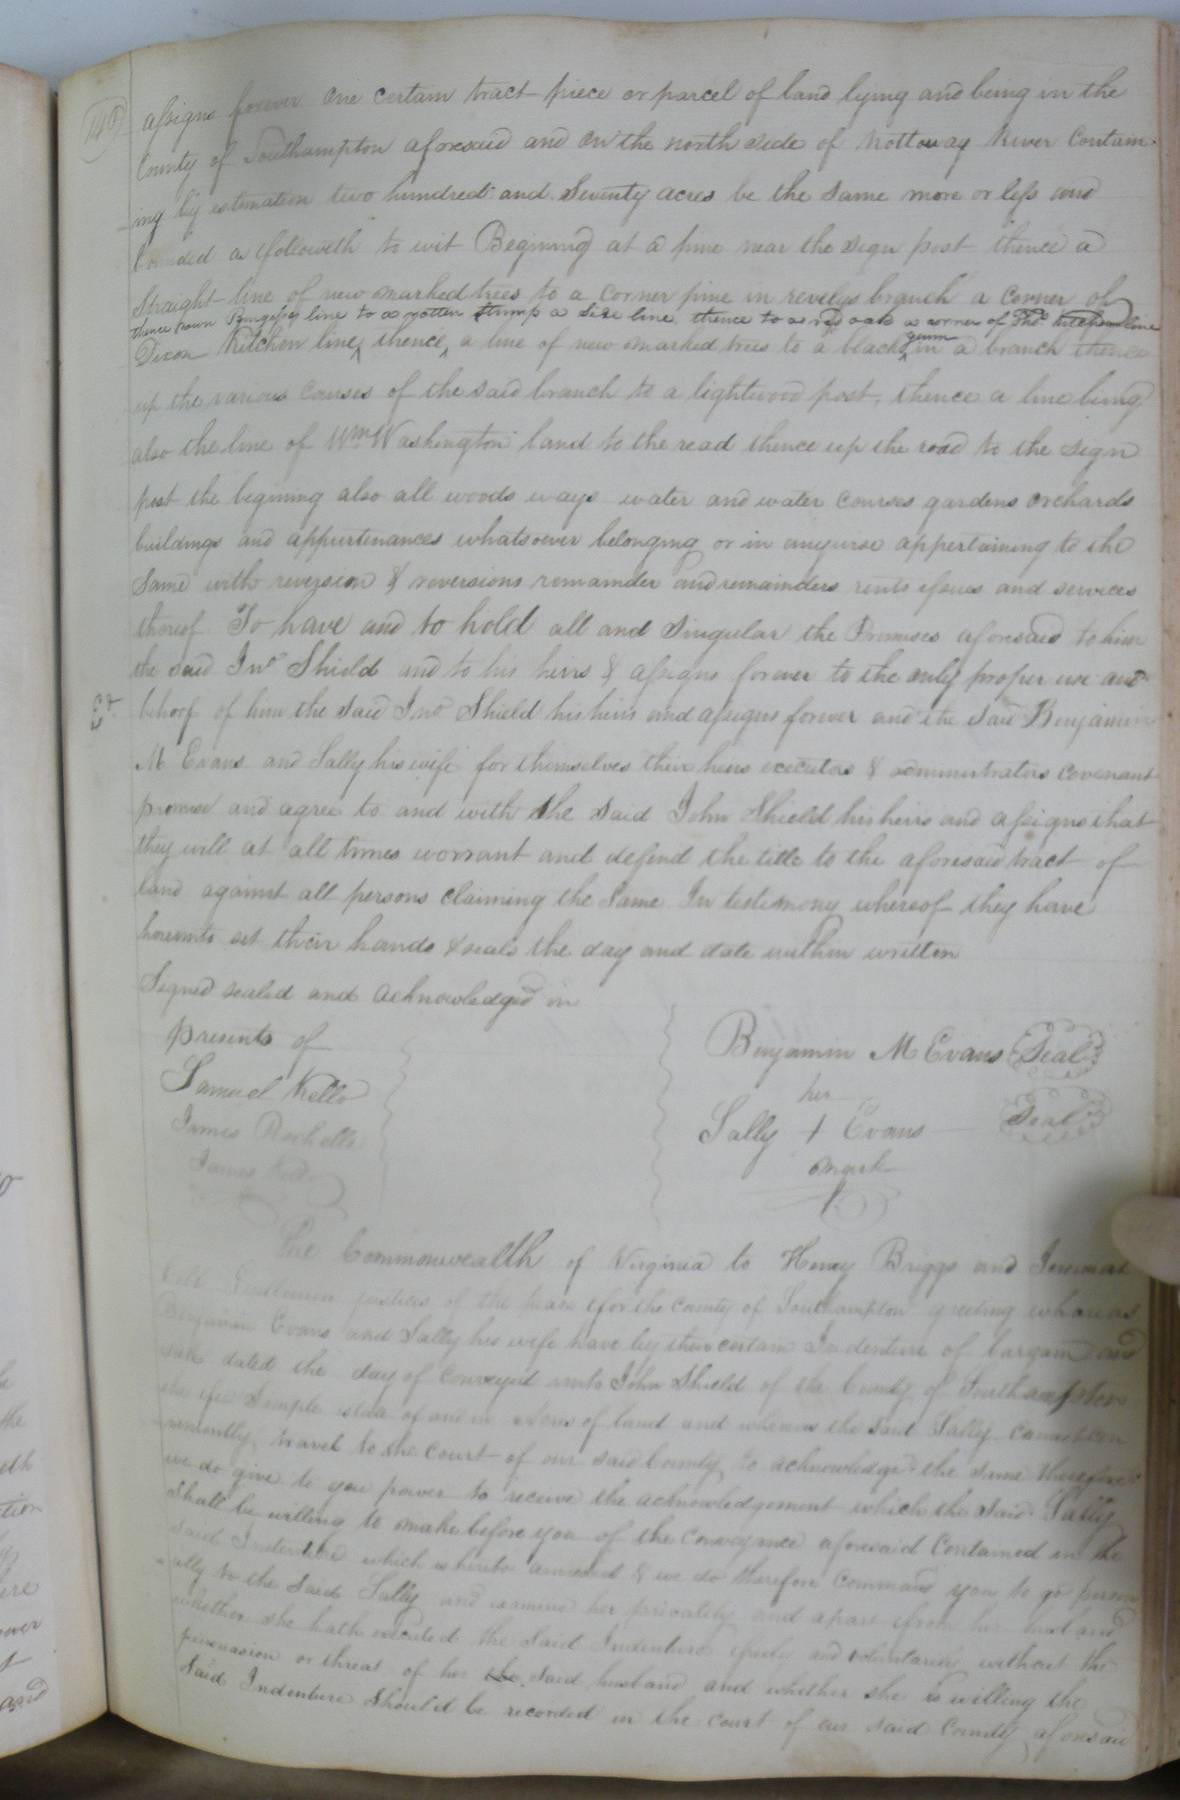 assigns forever One certain tract piece or parcel of land lying and being in the
County of Southampton aforesaid and on the north side of Nottoway River Contain-
ing by estimation two hundred and Seventy acres be the same more or less and
bounded as followeth to wit Begining at a pine near the sign post thence a
Straight line of new marked trees to a corner pine in revelys branch a corner of
thence down line to a rotten stump a side line thence to a red oak a corner of Thos. line
Dixon Kitchen line, thence, a line of new marked trees to a black gum in a branch thence
up the various courses of the said branch to a lightwood post, thence a line being
also the line of Wm Washington land to the road thence up the road to the sign
post the begining also all woods ways water and water courses gardens orchards
buildings and appurtenances whatsoever belonging or in anywise appertaining to the
Same with reversion & reversions remainder and remainders rents issues and services
thereof To have and to hold all and Singular the Premises aforesaid to him
the said Jno Shield and to his heirs & assigns forever to the only proper use and
behoof of him the said Jno Shield his heirs and assigns forever and the said Benjamin
M Evans and Sally his wife for themselves their heirs executors & administrators covenant
promise and agree to and with the said John Shield his heirs and assigns that
they will at all times warrant and defend the title to the aforesaid tract of
land against all persons claiming the Same In testimony whereof they have
hereunto set their hands & seals the day and date within written
Signed sealed and acknowledged in
presents of
Samuel Kello
James Rochelle
James
Benjamin M Evans Seal
her
Sally + Evans Seal
mark
The Commonwealth of Virginia to Henry Briggs and
Gentlemen justices of the peace for the county of Southampton greeting whereas
Benjamin Evans and Sally his wife have by their certain Indenture of bargain and
sale dated the day of Conveyed unto John Shield of the County of Southampton
the fee Simple estate of and in Acres of land and whereas the said Sally cannot con
veniently travel to the Court of our said County to acknowledge the same therefore
we do give to you power to receive the acknowledgement which the said Sally
Shall be willing to make before you of the Conveyance aforesaid Contained in the
said Indenture which is hereto annexed & we do therefore Command you to go person
ally to the said Sally and examine her privately and apart from her husband
whether she hath executed the said Indenture freely and voluntarily without the
persuasion or threat of her the said husband and whether she is willing the
Said Indenture Should be recorded in the court of our said County aforesaid